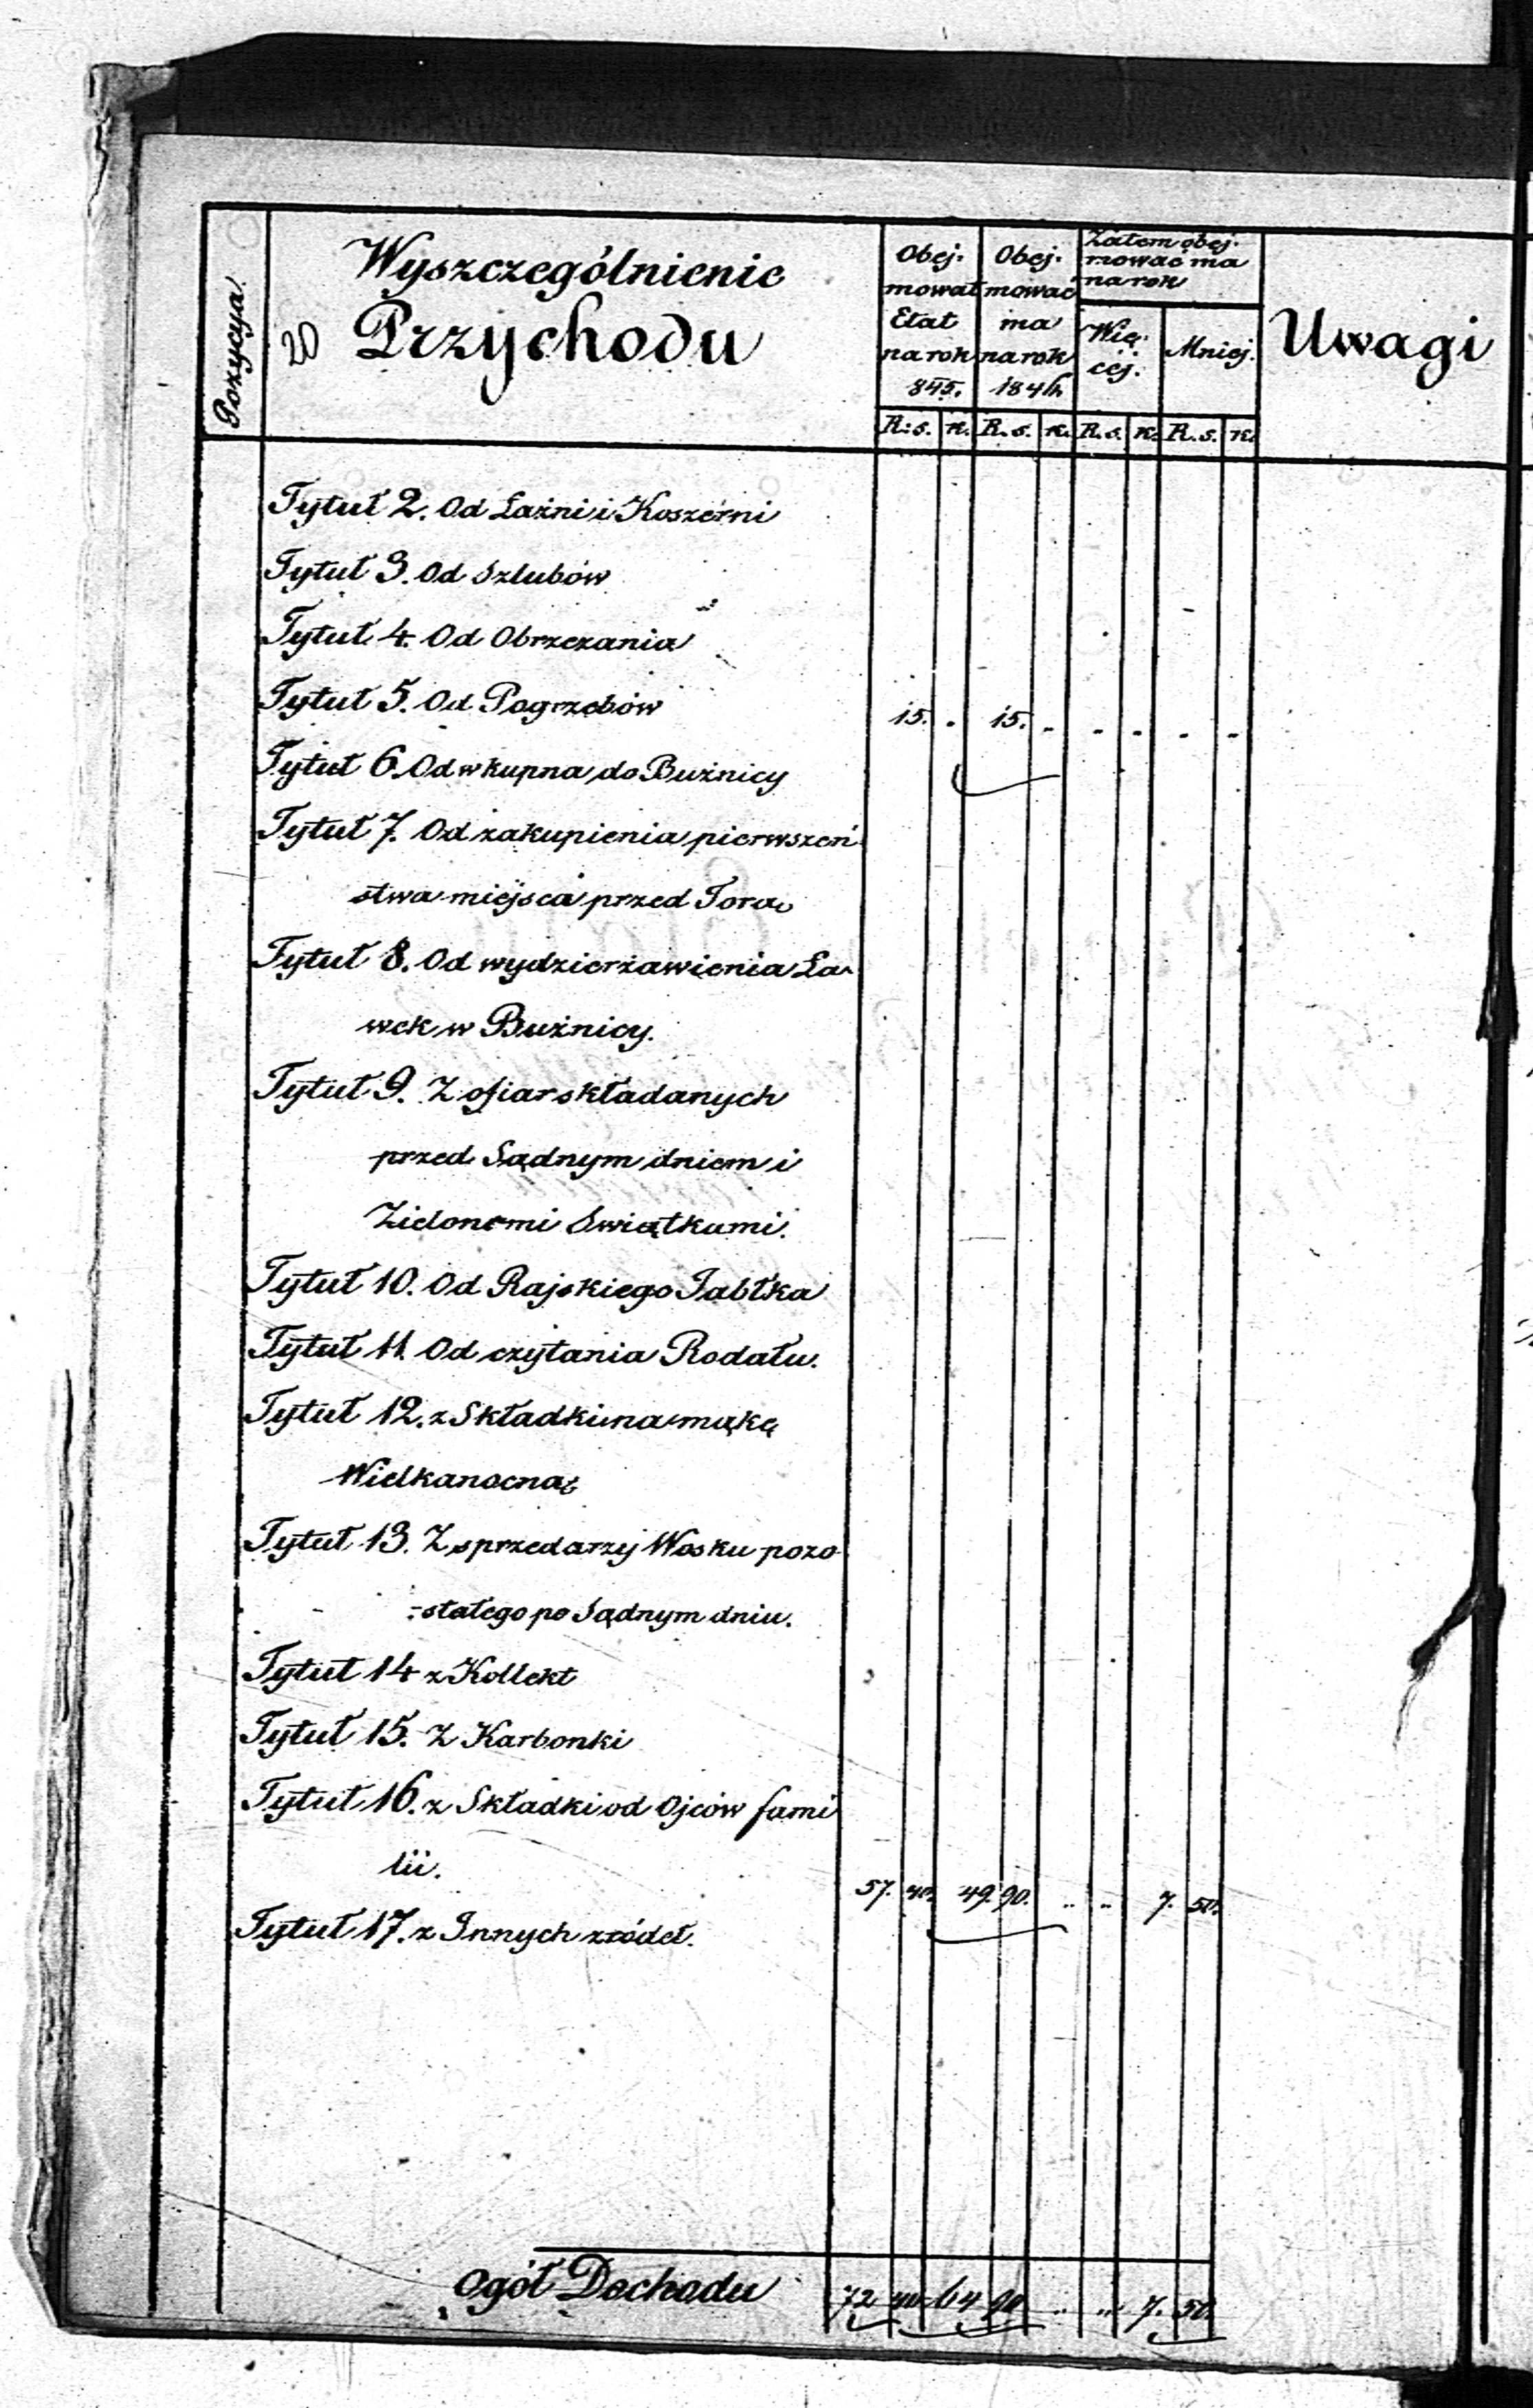 Pozycya.
Wyszczególnienie
20 Przychodu
Obej-
mował
Etat
na rok
845.
Obej-
mować
ma
na rok
184
Zatem obej-
mować ma
na rok
Wię-
cej.
Mniej.
Uwagi
R. s. k. R. s. k. R. s. k. R. s. k.
Tytuł 2. Od Łaźni i Koszerni
Tytuł 3. Od Szlubów
Tytuł 4. Od Obrzezania
Tytuł 5. Od Pogrzebów 15. - 15. - - - - -
Tytuł 6. Od wkupna do Bużnicy
Tytuł 7. Od zakupienia pierwszeń
stwa miejsca przed Torą
Tytuł 8. Od wydzierżawienia Ła-
wek w Bużnicy.
Tytuł 9. Z ofiar składanych
przed Sądnym dniem i
Zielonemi Swiątkami.
Tytuł 10. Od Rajskiego Jabłka
Tytuł 11. Od czytania Rodału.
Tytuł 12. z Składki na mąkę
Wielkanocną
Tytuł 13. Z sprzedarzy Wosku pozo
-stałego po Sądnym dniu.
Tytuł 14 z Kollekt
Tytuł 15. Z Karbonki
Tytuł 16. z Składki od Ojców fami
lii. 57. 40. 49. 90. .. .. 7. 50.
Tytuł 17. z Innych zródeł.
Ogół Dochodu 72 40 64 90 .. .. 7. 50.